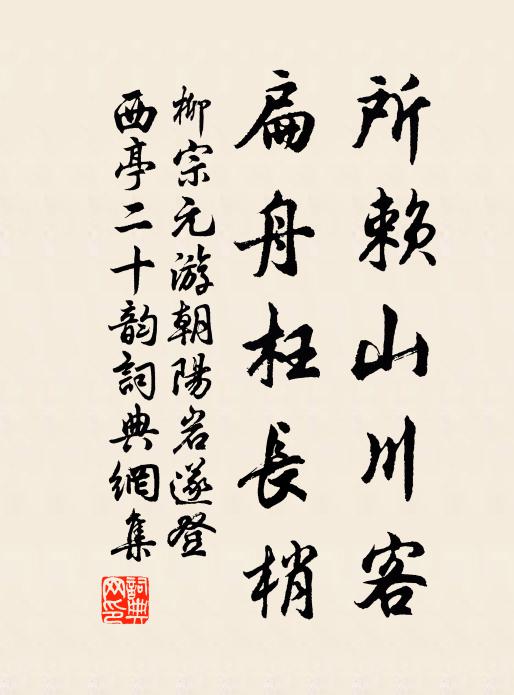 所賴山川客
扁舟枉長梢
柳宗元游朝陽岩遂登
西亭二十韵詞典網集
詞典
网印